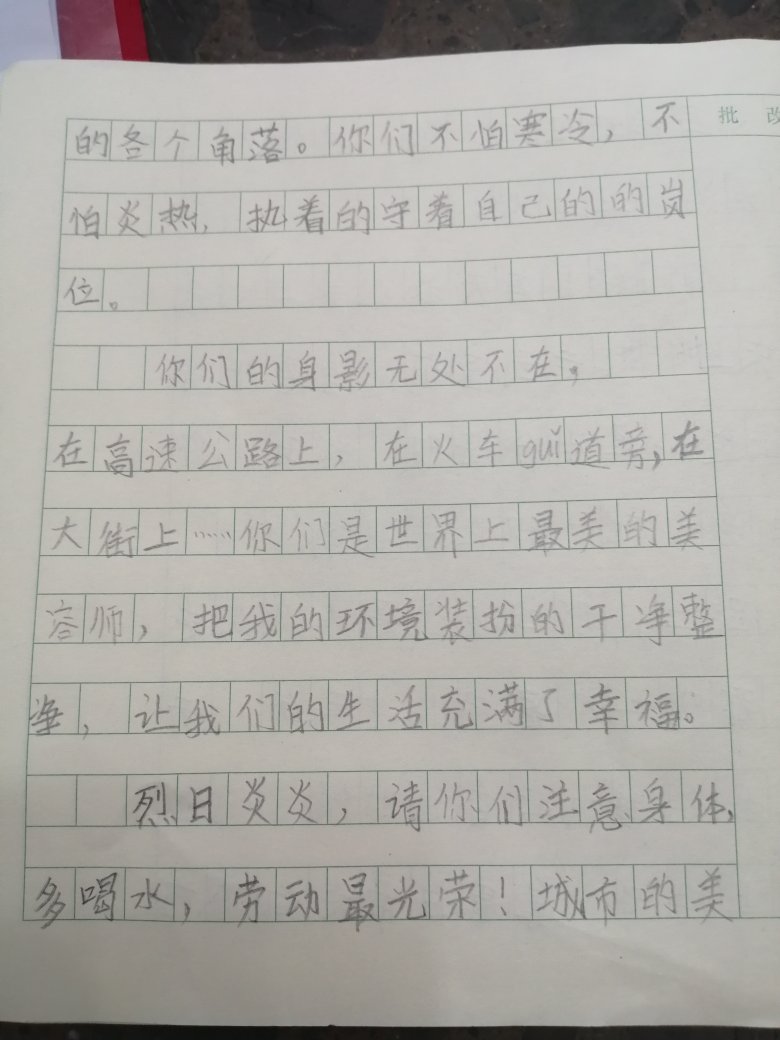 批 改
的各个角落。你们不怕寒冷，不
怕炎热，执着的守着自己的的岗
位。
你们的身影无处不在，
在高速公路上，在火车guǐ道旁，在
大街上……你们是世界上最美的美
容师，把我的环境装扮的干净整
净，让我们的生活充满了幸福。
烈日炎炎，请你们注意身体，
多喝水，劳动最光荣！城市的美